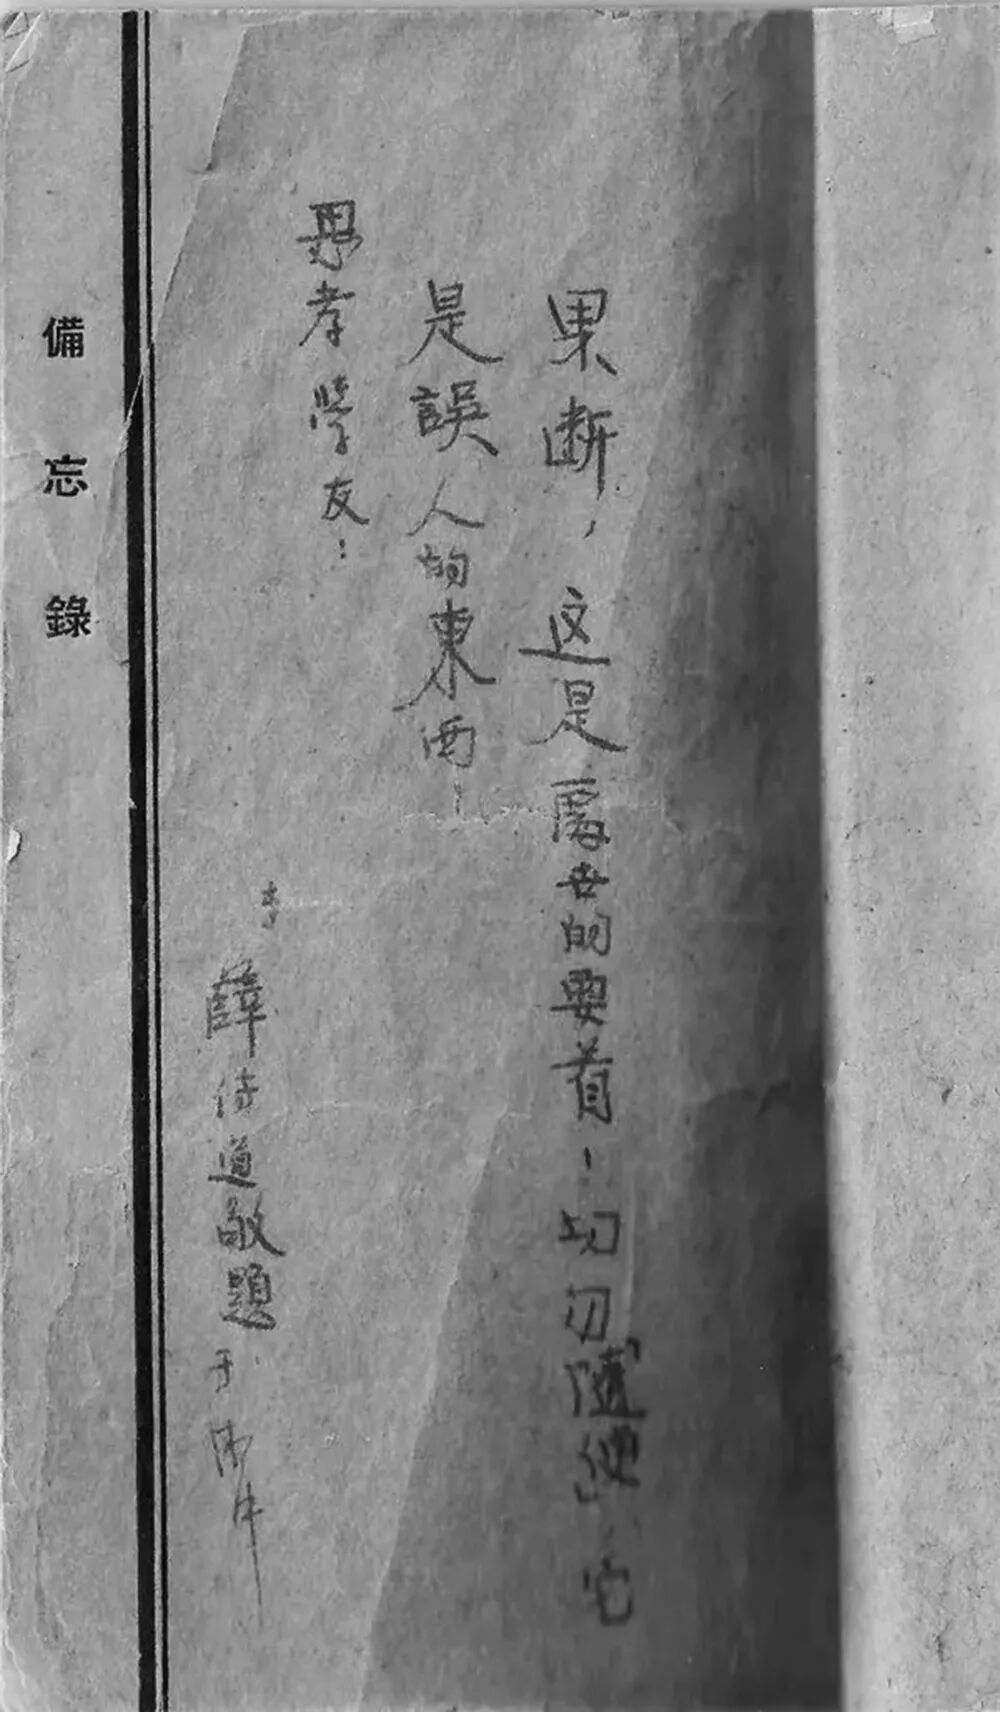 果断，这是處世的要着！切勿「隨便」，它
是誤人的東西！
思孝學友：
薛侍道敬題于
備忘錄